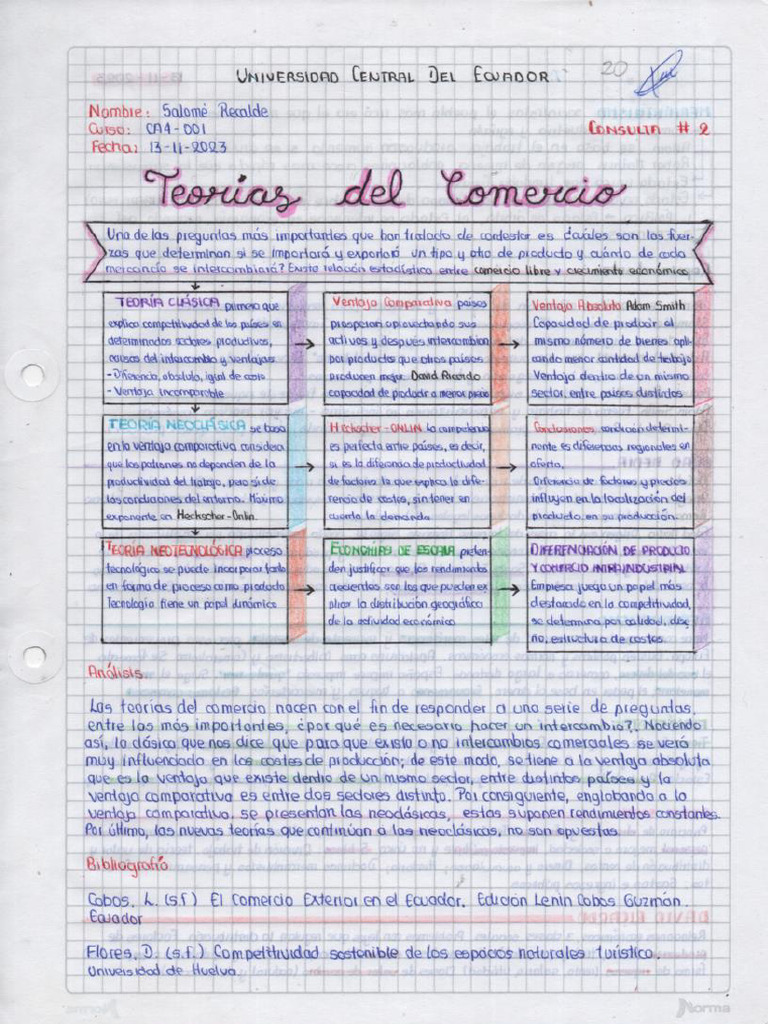 UNIVERSIDAD CENTRAL DEL ECUADOR
20
Nombre: Salomé Recalde
Curso: CA4-001
CONSULTA # 2
Fecha: 13-11-2023
Teorías del Comercio
Una de las preguntas más importantes que han tratado de contestar es ¿cuáles son las fuer-
zas que determinan si se importará y exportará un tipo y otro de producto y cuánto de cada
mercancía se intercambiará? Existe relación estadística entre comercio libre y crecimiento económico
TEORÍA CLÁSICA primera que
explica competitividad de los países en
determinados sectores productivos,
causas del intercambio y ventajas
- Diferencia, absoluta, igual de coste
- Ventaja incomparable
Ventaja Comparativa países
prosperan aprovechando sus
activos y después intercambian
por productos que otros países
producen mejor. David Ricardo
capacidad de producir a menor precio
Ventaja Absoluta Adam Smith
Capacidad de producir el
mismo número de bienes apli-
cando menor cantidad de trabajo
Ventaja dentro de un mismo
sector, entre países distintos
TEORÍA NEOCLÁSICA se basa
en la ventaja comparativa considera
que los patrones no dependen de la
productividad del trabajo, pero sí de
las condiciones del entorno. Máximo
exponente en Heckscher-Onlin.
Heckscher-ONLIN la competencia
es perfecta entre países, es decir,
si es la diferencia de productividad
de factores la que explica la dife-
rencia de costos, sin tener en
cuenta la demanda
Conclusiones condición determi-
nante es diferencias regionales en
oferta.
Diferencia de factores y precios
influyen en la localización del
producto en su producción.
TEORÍA NEOTECNOLÓGICA proceso
tecnológico se puede incorporar tanto
en forma de proceso como producto
Tecnología tiene un papel dinámico
ECONOMÍAS DE ESCALA preten-
den justificar que los rendimientos
crecientes son los que pueden ex
plicar la distribución geográfica
de la actividad económica
DIFERENCIACIÓN DE PRODUCTO
Y COMERCIO INTRAINDUSTRIAL
Empresa juega un papel más
destacado en la competitividad,
se determina por calidad, dise
ño, estructura de costes.
Análisis.
Las teorías del comercio nacen con el fin de responder a una serie de preguntas,
entre las más importantes, ¿por qué es necesario hacer un intercambio?. Naciendo
así, la clásica que nos dice que para que exista o no intercambios comerciales se verá
muy influenciado en los costes de producción; de este modo, se tiene a la ventaja absoluta
que es la ventaja que existe dentro de un mismo sector, entre distintos países y la
ventaja comparativa es entre dos sectores distinto. Por consiguiente, englobando a la
ventaja comparativa, se presentan las neoclásicas, estas suponen rendimientos constantes.
Por último, las nuevas teorías que continúan a las neoclásicas, no son opuestas
Bibliografía
Cobos, L. (s.f) El Comercio Exterior en el Ecuador. Edición Lenin Cobos Guzmán.
Ecuador
Flores, D. (s.f.) Competitividad sostenible de los espacios naturales turístico.
Universidad de Huelva.
Norma